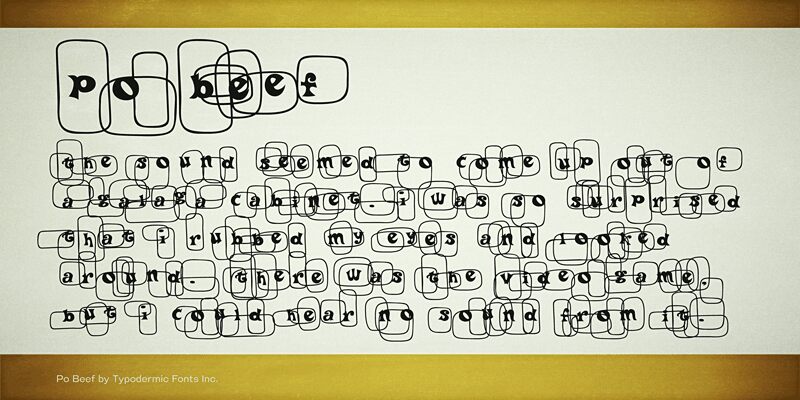 po beef
the sound seemed to come up out of
a galaga cabinet. i was so surprised
that i rubbed my eyes and looked
around. there was the video game.
but i could hear no sound from it.
Po Beef by Typodermic Fonts Inc.